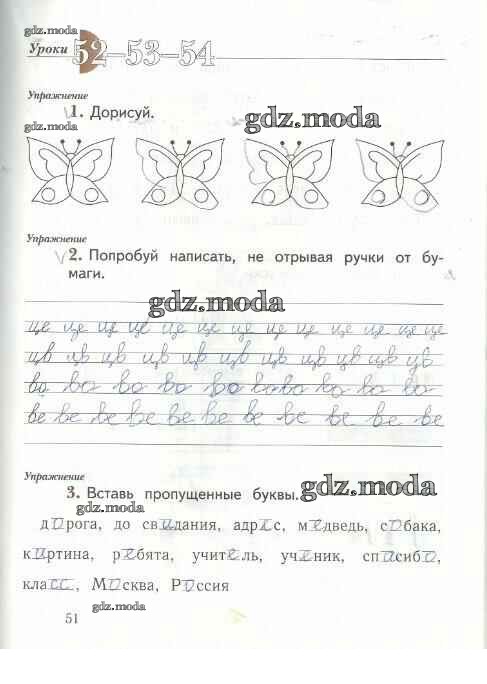 gdz.moda
Уроки 52–53–54
Упражнение
1. Дорисуй.
gdz.moda gdz.moda
Упражнение
2. Попробуй написать, не отрывая ручки от бу-
маги.
gdz.moda
це це це це це це це це це це це це це
цв цв цв цв цв цв цв цв цв цв цв
во во во во во во во во во во
ве ве ве ве ве ве ве ве ве ве ве
Упражнение
3. Вставь пропущенные буквы. gdz.moda
gdz.moda
дорога, до свидания, адрес, медведь, собака,
картина, ребята, учитель, ученик, спасибо,
класс, Москва, Россия
51 gdz.moda